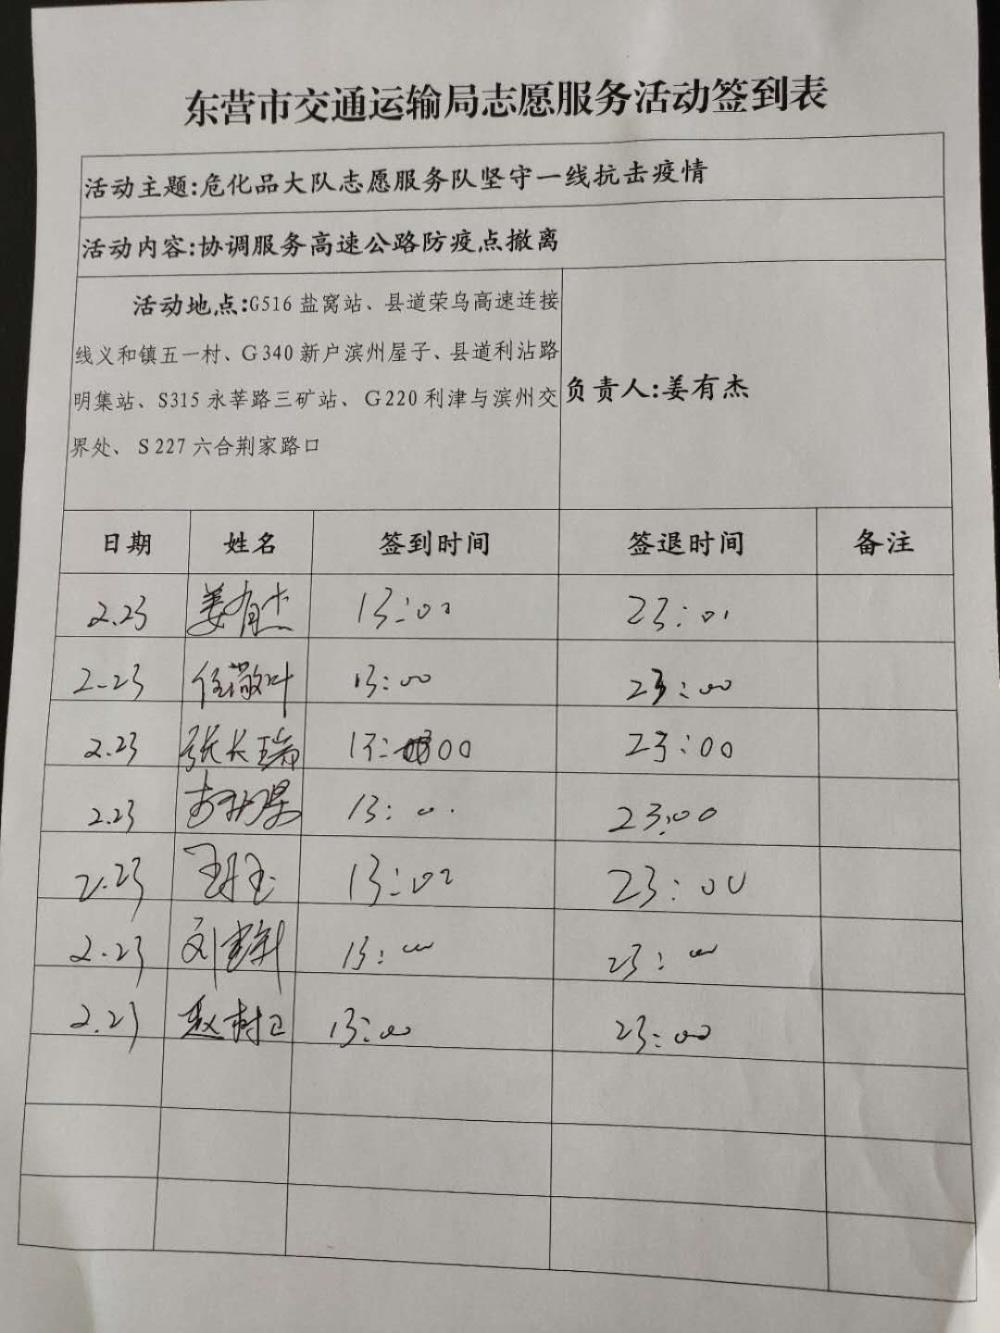 东营市交通运输局志愿服务活动签到表
活动主题:危化品大队志愿服务队坚守一线抗击疫情
活动内容:协调服务高速公路防疫点撤离
活动地点:G516 盐窝站、县道荣乌高速连接
线义和镇五一村、G340 新户滨州屋子、县道利沾路
明集站、S315 永莘路三矿站、G220 利津与滨州交
界处、S227 六合荆家路口
负责人:姜有杰
日期 姓名 签到时间 签退时间 备注
2.23 姜有杰 13:00 23:00
2.23 13:00 23:00
2.23 张长瑞 13:00 23:00
2.23 13:00 23:00
2.23 13:00 23:00
2.23 刘 13:00 23:00
2.23 赵树 13:00 23:00